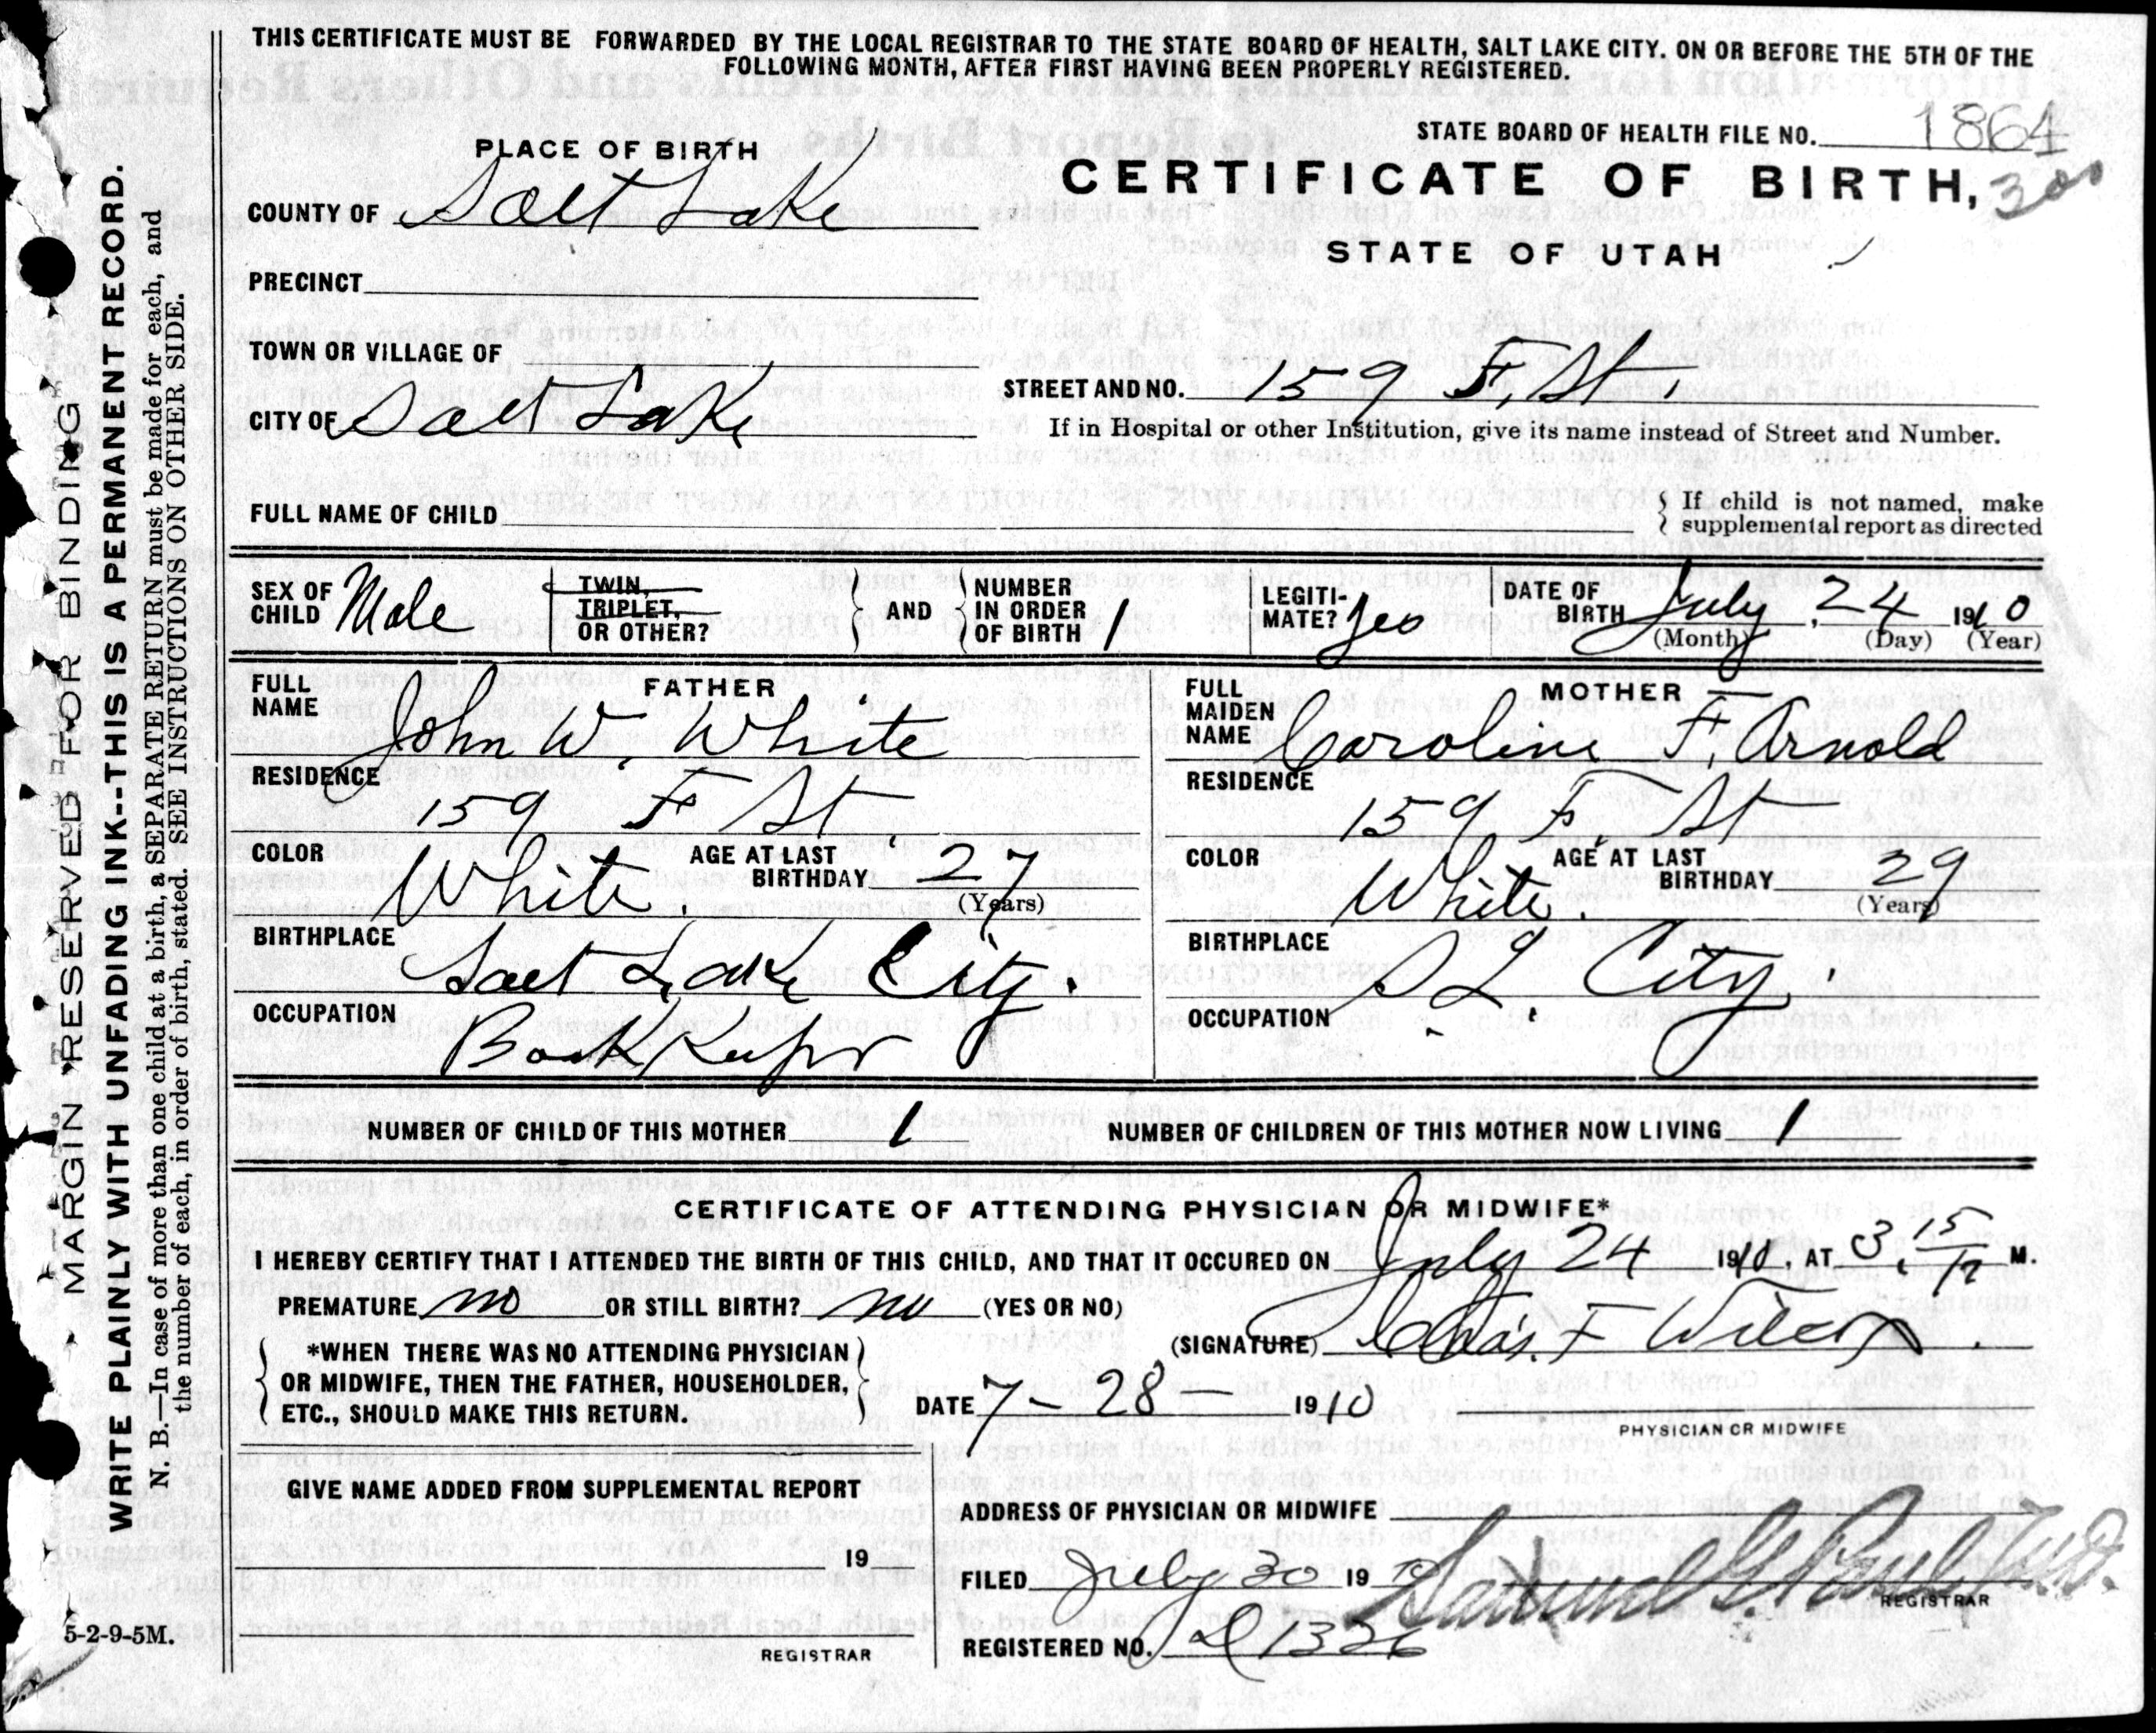 THIS CERTIFICATE MUST BE FORWARDED BY THE LOCAL REGISTRAR TO THE STATE BOARD OF HEALTH, SALT LAKE CITY. ON OR BEFORE THE 5TH OF THE
FOLLOWING MONTH, AFTER FIRST HAVING BEEN PROPERLY REGISTERED.
STATE BOARD OF HEALTH FILE NO. 1864
PLACE OF BIRTH
CERTIFICATE OF BIRTH, 300
STATE OF UTAH
COUNTY OF Salt Lake
PRECINCT
TOWN OR VILLAGE OF
CITY OF Salt Lake
STREET AND NO. 159 F. St.
If in Hospital or other Institution, give its name instead of Street and Number.
FULL NAME OF CHILD
If child is not named, make
supplemental report as directed
SEX OF CHILD Male
TWIN,
TRIPLET,
OR OTHER?
AND
NUMBER
IN ORDER
OF BIRTH 1
LEGITI-
MATE? Yes
DATE OF
BIRTH July 24 1910
(Month) (Day) (Year)
FATHER
FULL
NAME John W. White
RESIDENCE
159 F St.
COLOR White.
AGE AT LAST
BIRTHDAY 27
(Years)
BIRTHPLACE
Salt Lake City.
OCCUPATION
Book Keeper
MOTHER
FULL
MAIDEN
NAME Caroline F. Arnold
RESIDENCE
159 F. St
COLOR White.
AGE AT LAST
BIRTHDAY 29
(Years)
BIRTHPLACE
S L. City.
OCCUPATION
NUMBER OF CHILD OF THIS MOTHER 1
NUMBER OF CHILDREN OF THIS MOTHER NOW LIVING 1
CERTIFICATE OF ATTENDING PHYSICIAN OR MIDWIFE*
I HEREBY CERTIFY THAT I ATTENDED THE BIRTH OF THIS CHILD, AND THAT IT OCCURED ON July 24 1910, AT 3, 15 M.
PREMATURE no OR STILL BIRTH? no (YES OR NO)
(SIGNATURE) Chas. F Wilcox.
*WHEN THERE WAS NO ATTENDING PHYSICIAN
OR MIDWIFE, THEN THE FATHER, HOUSEHOLDER,
ETC., SHOULD MAKE THIS RETURN.
DATE 7-28- 1910
PHYSICIAN OR MIDWIFE
GIVE NAME ADDED FROM SUPPLEMENTAL REPORT
19
REGISTRAR
ADDRESS OF PHYSICIAN OR MIDWIFE
FILED July 30 19 10 Samuel G. Paul M.D.
REGISTRAR
REGISTERED NO. 1326
MARGIN RESERVED FOR BINDING
WRITE PLAINLY WITH UNFADING INK--THIS IS A PERMANENT RECORD.
N. B.—In case of more than one child at a birth, a SEPARATE RETURN must be made for each, and
the number of each, in order of birth, stated. SEE INSTRUCTIONS ON OTHER SIDE.
5-2-9-5M.